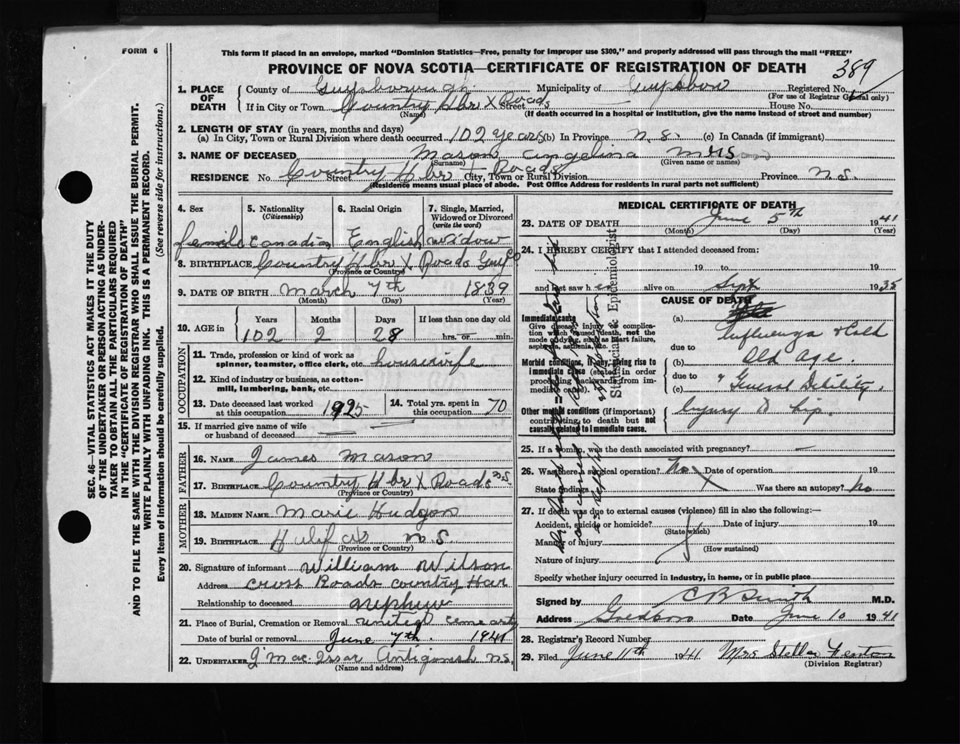 FORM 6
This form if placed in an envelope, marked "Dominion Statistics—Free, penalty for improper use $300," and properly addressed will pass through the mail "FREE"
PROVINCE OF NOVA SCOTIA—CERTIFICATE OF REGISTRATION OF DEATH
389
1. PLACE OF DEATH
County of Guysborough Municipality of Guysboro Registered No.
(For use of Registrar General only)
If in City or Town Country Hbr X Roads Street House No.
(Name) (If death occurred in a hospital or institution, give the name instead of street and number)
2. LENGTH OF STAY (in years, months and days)
(a) In City, Town or Rural Division where death occurred 102 years (b) In Province N.S. (c) In Canada (if immigrant)
3. NAME OF DECEASED Mason Angelina Mrs
(Surname) (Given name or names)
RESIDENCE No. Country Hbr X Roads Street City, Town or Rural Division Province N.S.
(Residence means usual place of abode. Post Office Address for residents in rural parts not sufficient)
4. Sex female
5. Nationality (Citizenship) Canadian
6. Racial Origin English
7. Single, Married, Widowed or Divorced (write the word) widow
8. BIRTHPLACE Country Hbr X Roads
(Province or Country)
9. DATE OF BIRTH March 7th 1839
(Month) (Day) (Year)
10. AGE in Years Months Days If less than one day old
102 2 28 hrs. or min.
OCCUPATION
11. Trade, profession or kind of work as spinner, teamster, office clerk, etc. housewife
12. Kind of industry or business, as cotton-mill, lumbering, bank, etc.
13. Date deceased last worked at this occupation 1925
14. Total yrs. spent in this occupation 70
15. If married give name of wife or husband of deceased
FATHER
16. NAME James Mason
17. BIRTHPLACE Country Hbr X Roads N.S.
(Province or Country)
MOTHER
18. MAIDEN NAME Marie Hudson
19. BIRTHPLACE Halifax N.S.
(Province or Country)
20. Signature of informant William Wilson
Address Cross Roads Country Har
Relationship to deceased nephew
21. Place of Burial, Cremation or Removal united cemetary
Date of burial or removal June 7th 1941
22. UNDERTAKER J Mac Issac Antigonish N.S.
(Name and address)
MEDICAL CERTIFICATE OF DEATH
23. DATE OF DEATH June 5th 1941
(Month) (Day) (Year)
24. I HEREBY CERTIFY that I attended deceased from:
19 to 19
and last saw h alive on Sept 1935
CAUSE OF DEATH
Immediate cause
Give disease, injury or complication which caused death, not the mode of dying, such as heart failure, asphyxia, asthenia, etc.
(a) Influenza & Cold
due to
Morbid conditions, if any, giving rise to immediate cause (stated in order proceeding backwards from immediate cause)
(b) Old age.
due to
(c) General Debility
Other morbid conditions (if important) contributing to death but not causally related to immediate cause.
Injury to hip.
Statistician & Epidemiologist
25. If a woman, was the death associated with pregnancy?
26. Was there a surgical operation? No Date of operation 19
State findings Was there an autopsy? No
27. If death was due to external causes (violence) fill in also the following:—
Accident, suicide or homicide? Date of injury 19
(State which)
Manner of injury
(How sustained)
Nature of injury
Specify whether injury occurred in industry, in home, or in public place
Signed by C B Smith M.D.
Address Goldboro Date June 10 1941
28. Registrar's Record Number
29. Filed June 11th 1941 Mrs Stella Fenton
(Division Registrar)
SEC. 46—VITAL STATISTICS ACT MAKES IT THE DUTY
OF THE UNDERTAKER OR PERSON ACTING AS UNDER-
TAKER TO OBTAIN ALL THE PARTICULARS REQUIRED
IN THE "CERTIFICATE OF REGISTRATION OF DEATH"
AND TO FILE THE SAME WITH THE DIVISION REGISTRAR WHO SHALL ISSUE THE BURIAL PERMIT.
WRITE PLAINLY WITH UNFADING INK. THIS IS A PERMANENT RECORD.
Every item of information should be carefully supplied. (See reverse side for instructions.)